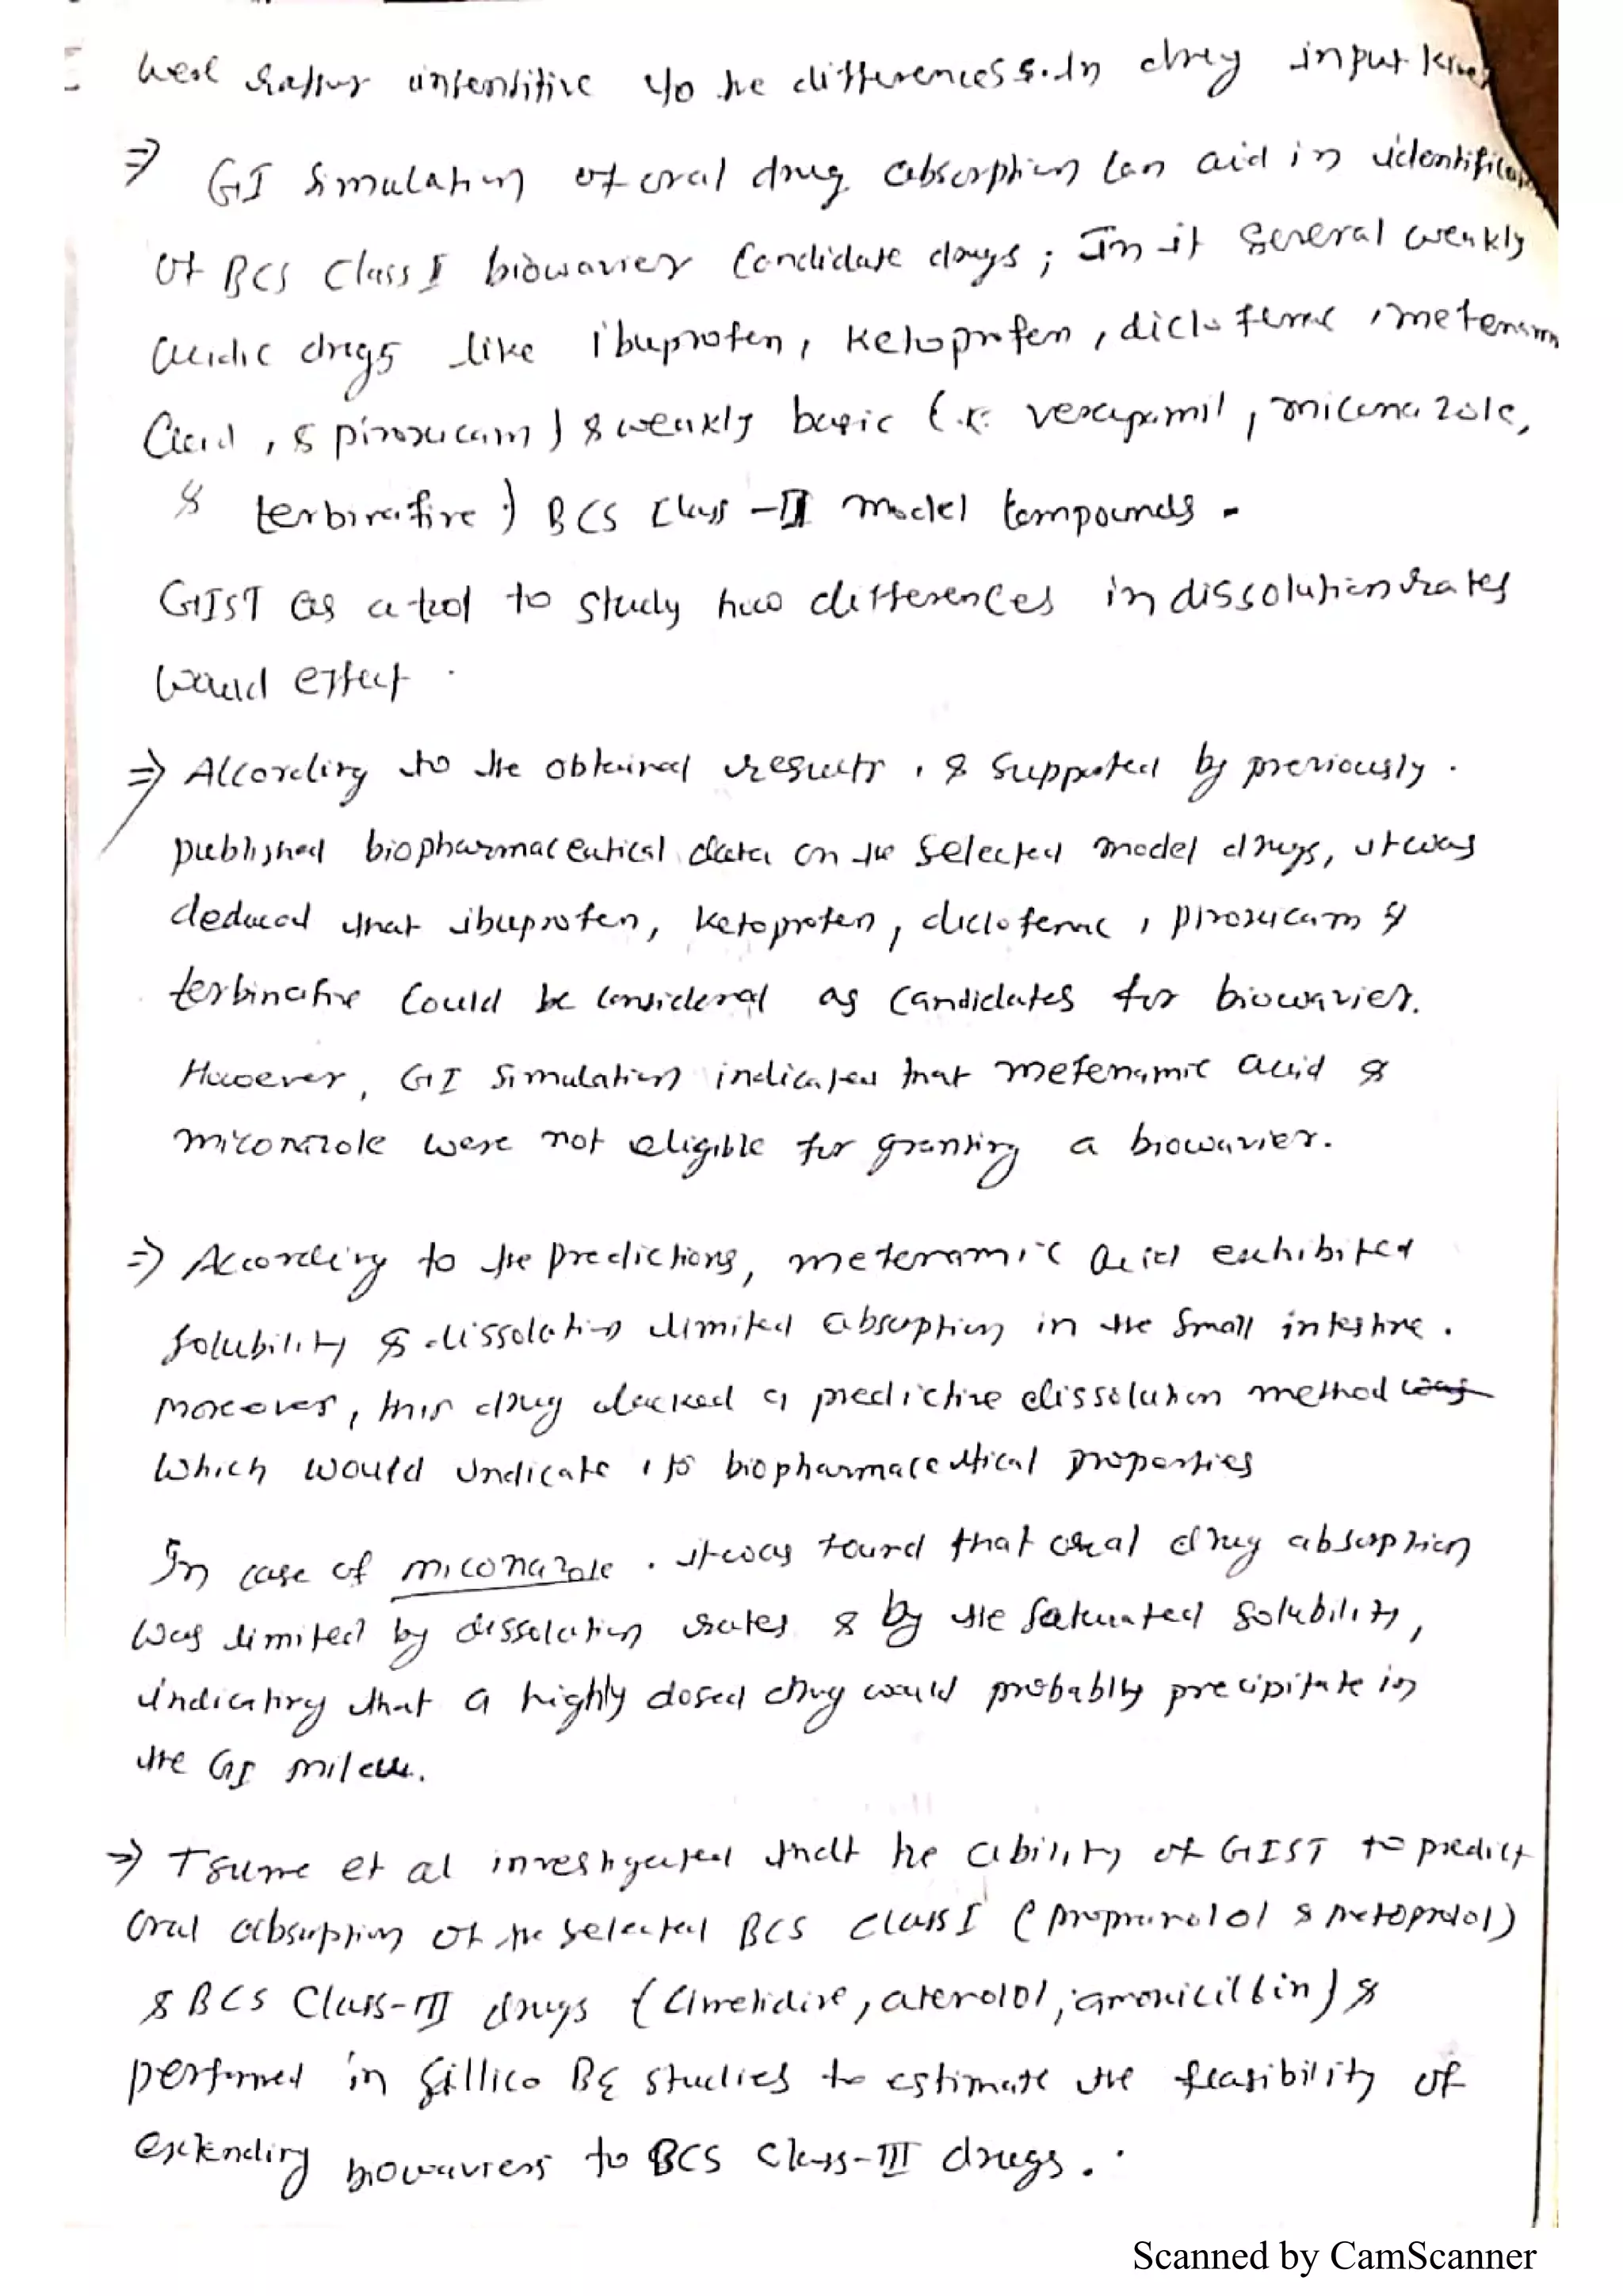 were rather insensitive to he differences s. In drug input
⇒ GI Simulation of oral drug absorption can aid in
of BCS Class I biowavier Candidate drugs ; In it Several weakly
acidic drugs like ibuprofen, Ketoprofem, diclofenac, mefenam
Acid, & piroxicam ) & weakly basic ( verapamil, miconazole,
& terbinafine ) BCS Class - II model compounds -
GIST as a tool to study how differences in dissolution rates
would effect .
⇒ According to the obtained results, & Supported by previously .
published biopharmaceutical data on the Selected model drugs, it was
deduced that ibuprofen, Ketoprofen, diclofenac, piroxicam &
terbinafine Could be considered as Candidates for biowavier.
However, GI Simulation indicated that mefenamic acid &
miconazole were not eligible for granting a biowavier.
⇒ According to the Predictions, mefenamic Acid exhibited
solubility & dissolution limited absorption in the Small intestine .
Moreover, this drug lacked a predictive dissolution method was
Which would indicate its biopharmaceutical properties
In case of miconazole . it was found that oral drug absorption
was limited by dissolution rates & by the Saturated Solubility,
indicating that a highly dosed drug would probablly precipitate in
the GI mileu.
⇒ Tsume et al investigated he ability of GIST to predict
Oral absorption of the Selected BCS Class I ( propranolol & metoprolol)
& BCS Class-III drugs ( Cimetidine, atenolol, amoxicillin ) &
performed in Sillico BE studies to estimate the feasibility of
extending biowaviers to BCS Class-III drugs.
Scanned by CamScanner